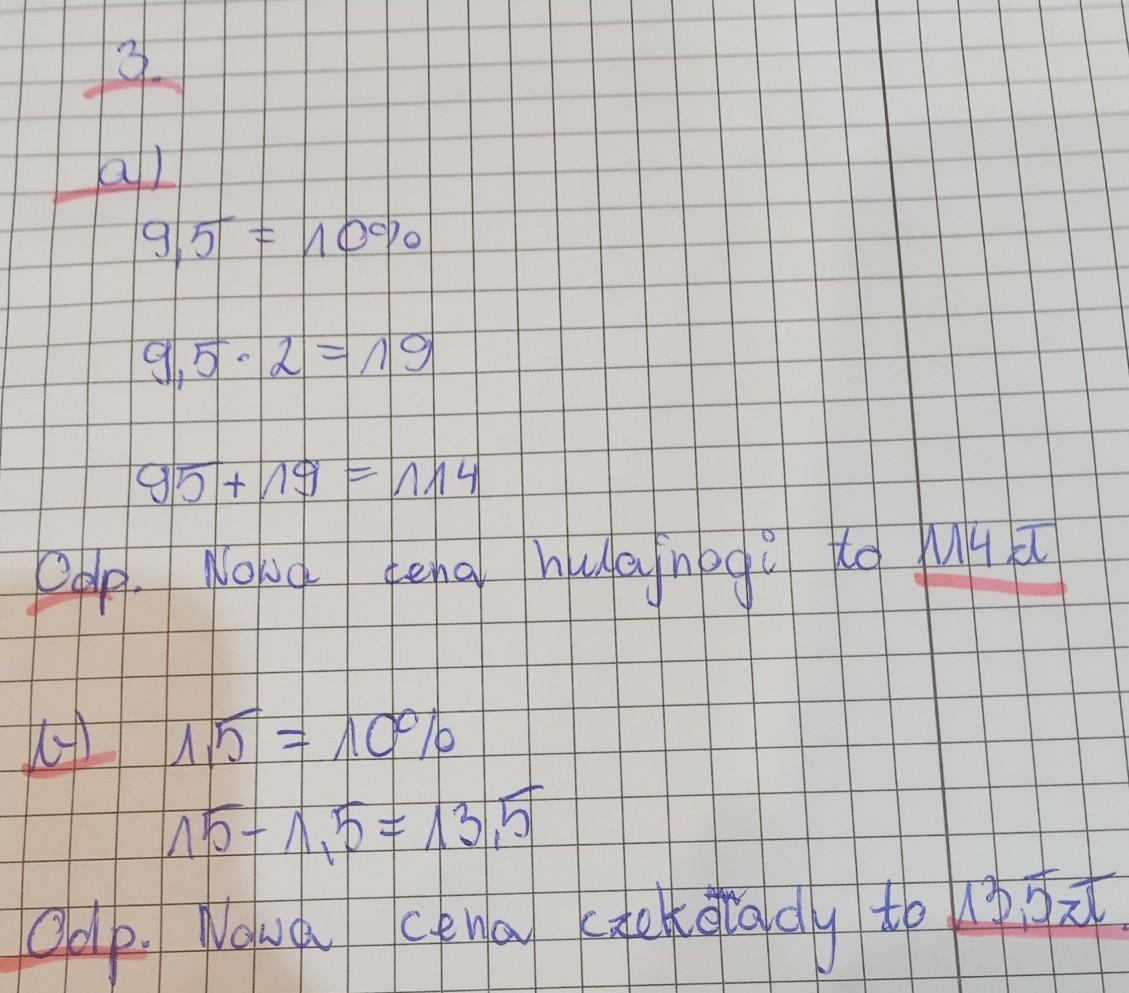 3.
a)
9,5 = 10%
9,5 · 2 = 19
95 + 19 = 114
Odp. Nowa cena hulajnogi to 114 zł
b) 1,5 = 10%
15 - 1,5 = 13,5
Odp. Nowa cena czekolady to 13,5 zł.